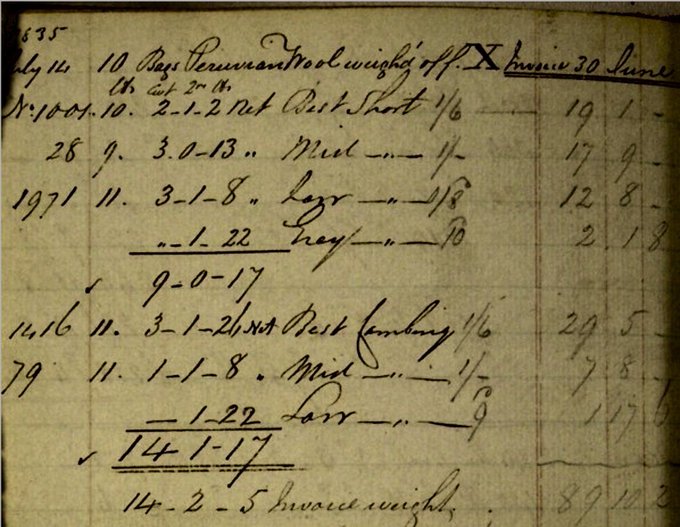 1835
July 14 10 Bags Peruvian Wool weigh'd off. X Invoice 30 June
lb Cwt 2rs lbs
No. 1001. 10. 2-1-2 Net Best Short 1/6 — 19 1 -
28 9. 3.0-13 " Mid —"— 1/- 17 9 -
1971 11. 3-1-8 " Low —"— /8 12 8 -
"-1-22 Grey —"— /10 2 1 8
9-0-17
1416 11. 3-1-26 Net Best Combing 1/6 29 5 -
79 11. 1-1-8 " Mid —"— 1/- 7 8 -
—1-22 Low —"— 9 1 17 6
14 1-17
14-2-5 Invoice weight. 89 10 2